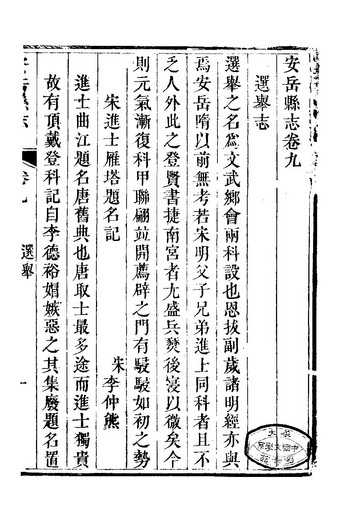 安岳縣志卷九
選舉志
選舉之名爲文武鄉會兩科設也恩拔副歲諸明經亦與
焉安岳隋以前無考若宋明父子兄弟進士同科者且不
乏人外此之登賢書捷南宮者尤盛兵燹後寖以微矣今
則元氣漸復科甲聯翩竝開薦辟之門有駸駸如初之勢
宋進士雁塔題名記
宋李仲熊
進士曲江題名唐舊典也唐取士最多途而進士獨貴
故有頂戴登科記自李德裕媢嫉惡之其集廢題名置
卷九
選舉
一